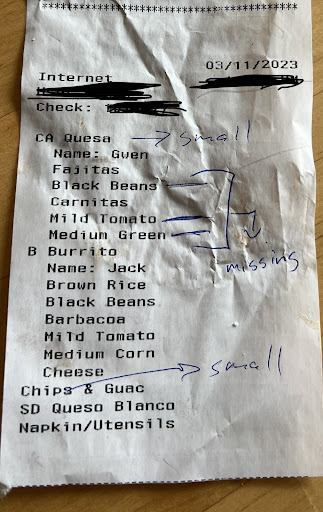 ************************************
03/11/2023
Internet
Check:
CA Quesa → small
Name: Gwen
Fajitas
Black Beans
Carnitas
Mild Tomato
Medium Green
missing
B Burrito
Name: Jack
Brown Rice
Black Beans
Barbacoa
Mild Tomato
Medium Corn
Cheese
Chips & Guac → small
SD Queso Blanco
Napkin/Utensils